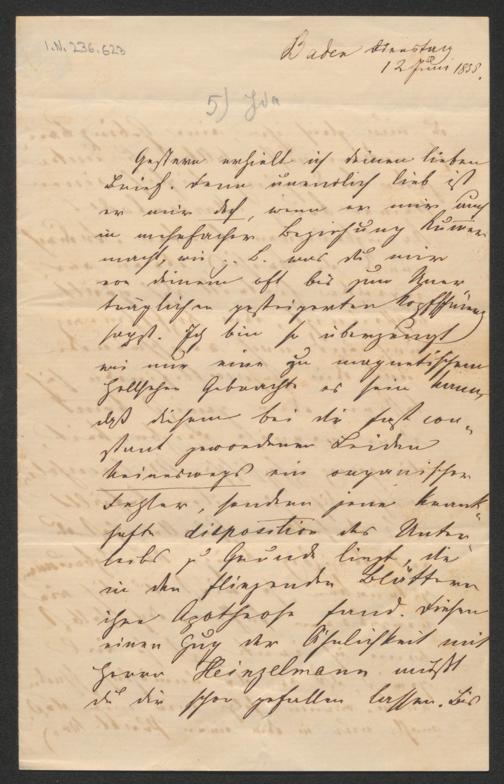 I.N. 236.623
Baden Dienstag
12 Juni 1855.
5) Ida
Gestern erhielt ich deinen lieben
Brief. denn unendlich lieb ist
er mir doch, wenn er mir auch
in mehrfacher Beziehung Kummer
macht, wie z. B. was du mir
von deinem oft bis zum Uner
träglichen gesteigerten Kopfschmerz
sagst. Ich bin so überzeugt
wie nur eine zu magnetischem
Hellsehen Gebrachte es sein kann,
daß diesem bei dir fast con„
stant gewordenen Leiden
keineswegs ein organischer
Fehler, sondern jene krank„
hafte disposition des Unter„
leibs zu Grunde liegt, die
in den fliegenden Blättern
ihre Apotheose fand. Diesen
einen Zug der Ähnlichkeit mit
Herrn Heinzelmann mußt
du dir schon gefallen lassen. Bis